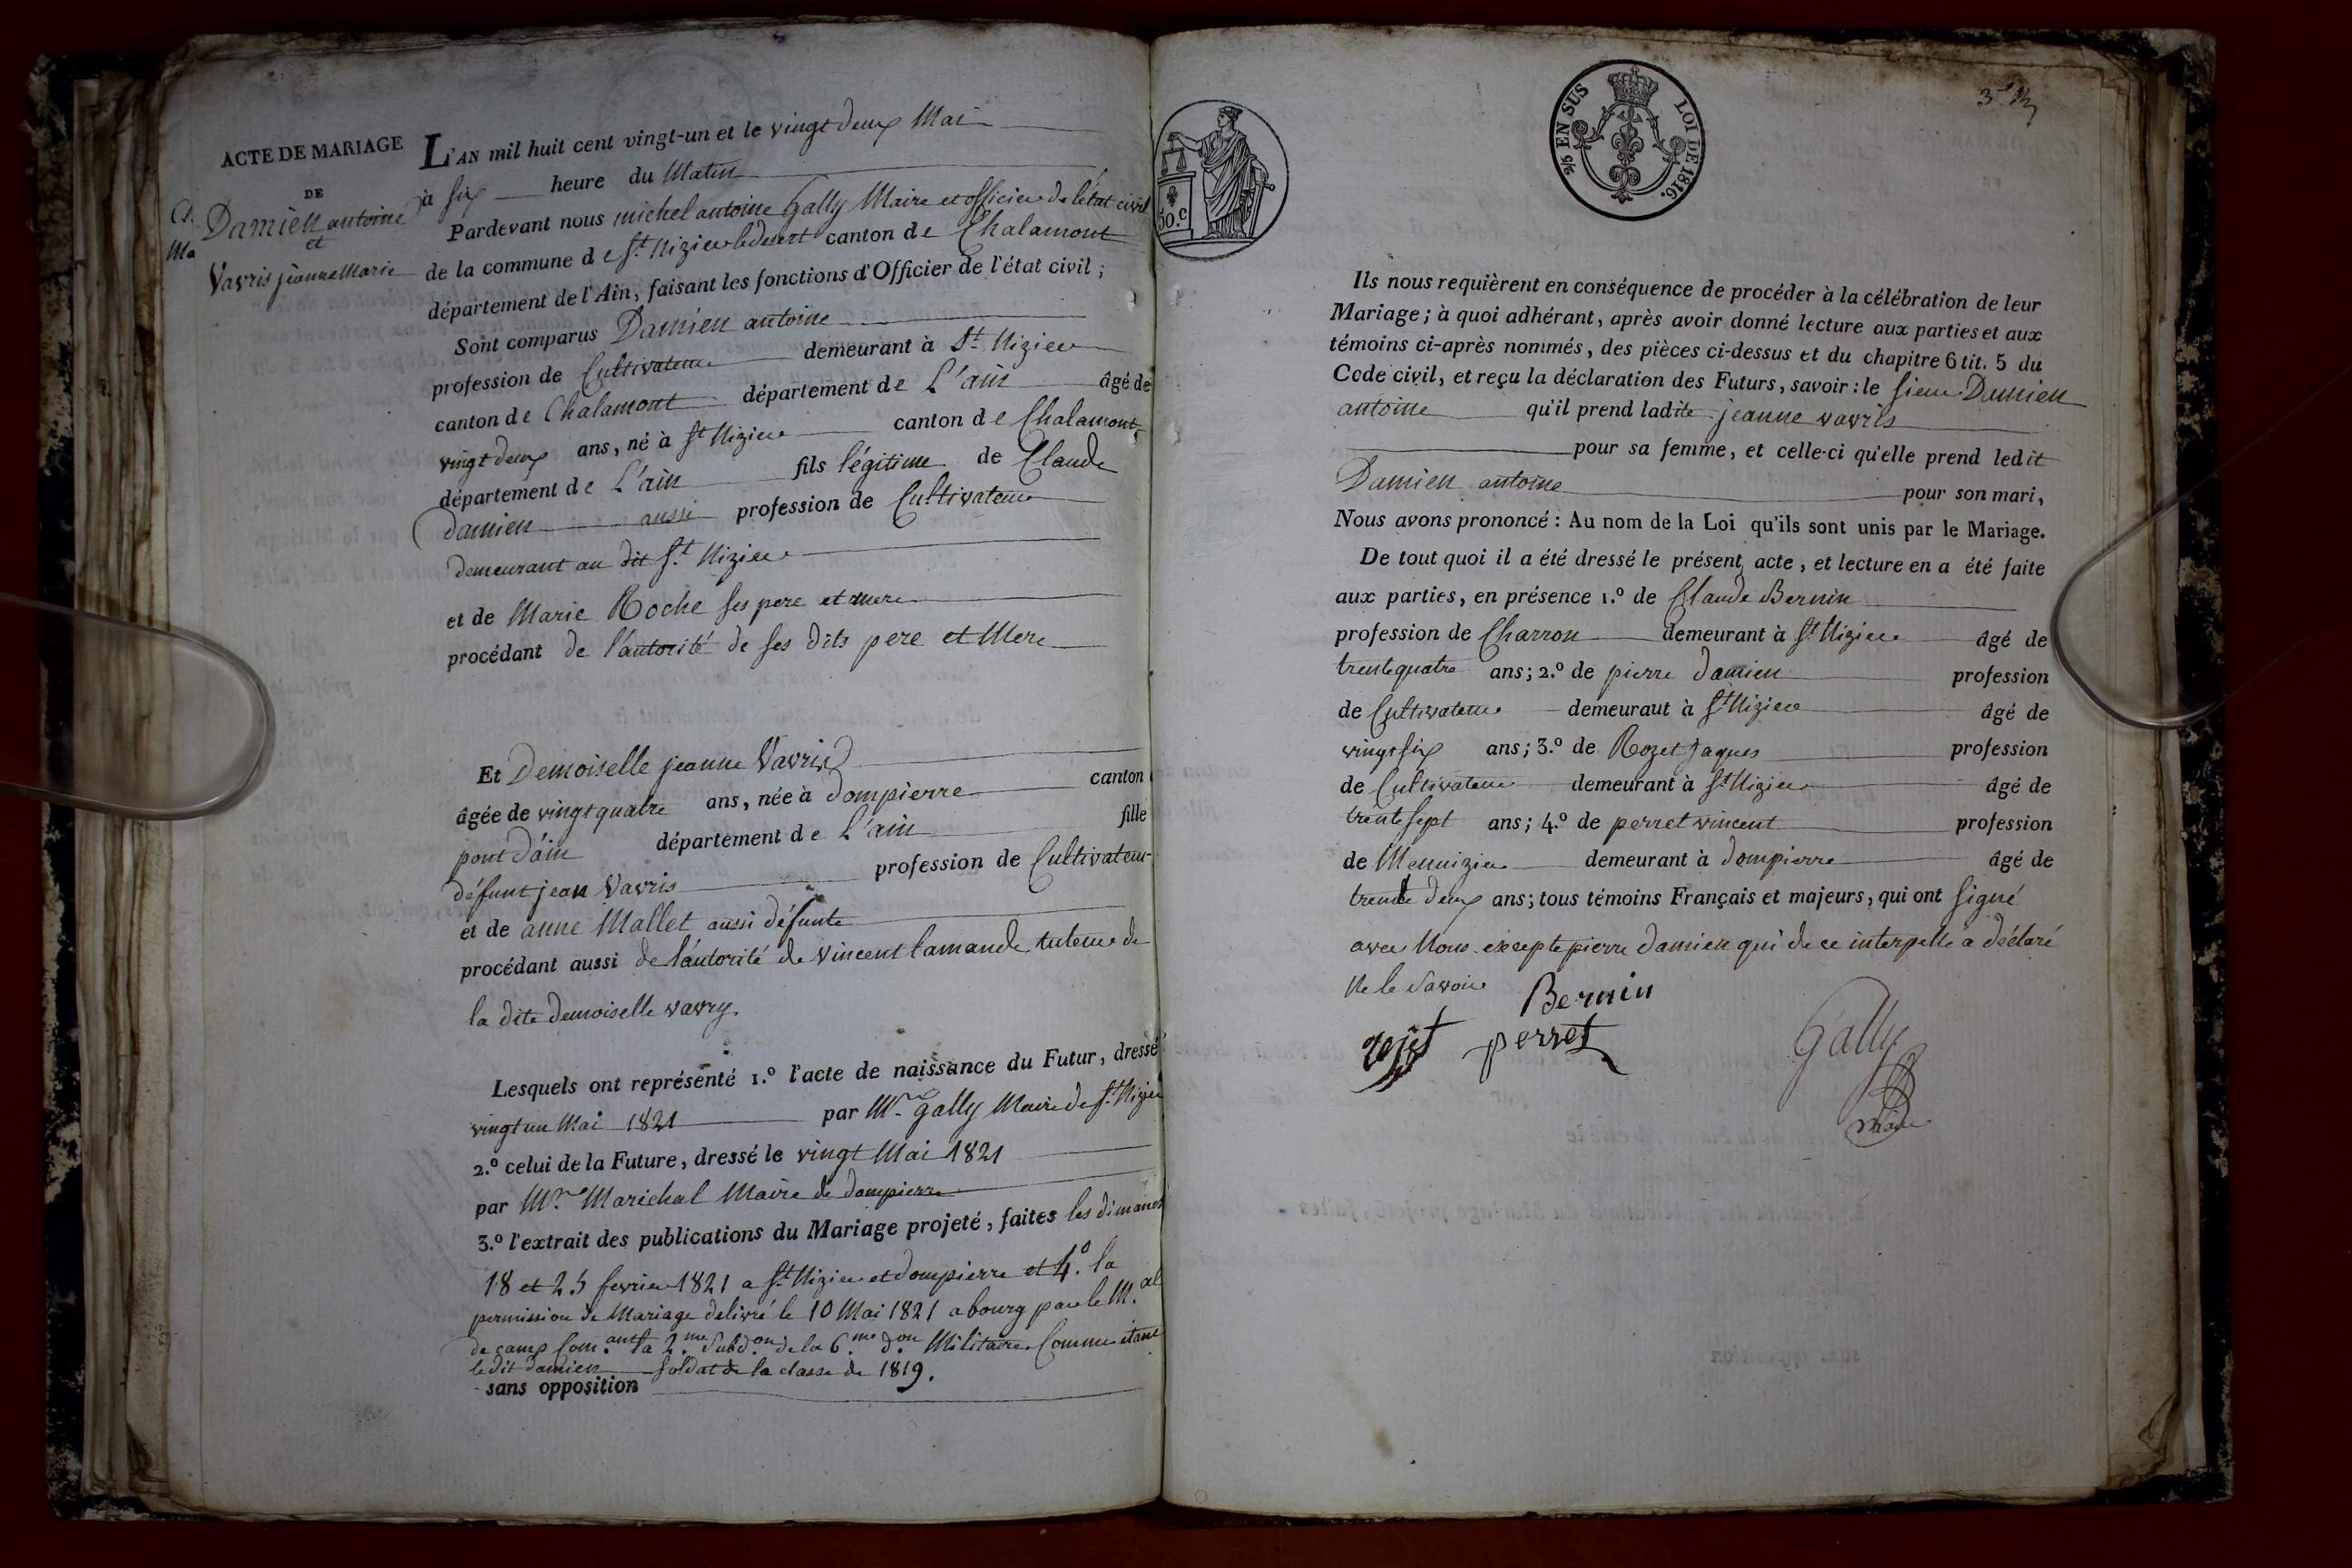 ACTE DE MARIAGE
DE
Damien antoine
et
Vavris jeanne Marie
L'AN mil huit cent vingt-un et le vingt deux Mai
à six heure du Matin
Pardevant nous michel antoine Gally Maire et officier de l'état civil
de la commune de St. Nizier le desert canton de Chalamont
département de l'Ain, faisant les fonctions d'Officier de l'état civil ;
Sont comparus Damien antoine
profession de Cultivateur demeurant à St. Nizier
canton de Chalamont département de L'ain âgé de
vingt deux ans, né à St Nizier canton de Chalamont,
département de L'ain fils légitime de Claude
damien aussi profession de Cultivateur
demeurant au dit St. Nizier
et de Marie Roche ses pere et mere
procédant de l'autorité de ses dits pere et Mere
Et Demoiselle jeanne Vavris
âgée de vingt quatre ans, née à dompierre canton
pont d'ain département de L'ain fille
défunt jean Vavris profession de Cultivateur
et de anne Mallet aussi défunte
procédant aussi de l'autorité de Vincent lamande tuteur de
la dite demoiselle vavry.
Lesquels ont représenté 1.º l'acte de naissance du Futur, dressé
vingt un Mai 1821 par Mr. Gally Maire de St. Nizier
2.º celui de la Future, dressé le vingt Mai 1821
par Mr. Marechal Maire de dompierre
3.º l'extrait des publications du Mariage projeté, faites les dimanch
18 et 25 fevrier 1821 a St. Nizier et dompierre et 4.º la
permission de Mariage delivré le 10 Mai 1821 a bourg par le M.al
de camp Com.ant la 2.me Subd.on de la 6.me d.on Militaire Comme étant
le dit damien soldat de la classe de 1819.
sans opposition
50.c
EN SUS
LOI DE 1816.
Ils nous requièrent en conséquence de procéder à la célébration de leur
Mariage ; à quoi adhérant, après avoir donné lecture aux parties et aux
témoins ci-après nommés, des pièces ci-dessus et du chapitre 6 tit. 5 du
Code civil, et reçu la déclaration des Futurs, savoir : le sieur Damien
antoine qu'il prend ladite jeanne vavris
pour sa femme, et celle-ci qu'elle prend ledit
Damien antoine pour son mari,
Nous avons prononcé : Au nom de la Loi qu'ils sont unis par le Mariage.
De tout quoi il a été dressé le présent acte, et lecture en a été faite
aux parties, en présence 1.º de Claude Bernin
profession de Charron demeurant à St. Nizier âgé de
trente quatre ans ; 2.º de pierre damien profession
de Cultivateur demeuraut à St Nizier âgé de
vingt six ans ; 3.º de Rozet jaques profession
de Cultivateur demeurant à St Nizier âgé de
trente sept ans ; 4.º de perret vincent profession
de Mennizier demeurant à dompierre âgé de
trente deux ans ; tous témoins Français et majeurs, qui ont signé
avec Nous excepte pierre damien qui de ce interpelle a déclaré
Ne le savoir
Bernin
perret
Gally